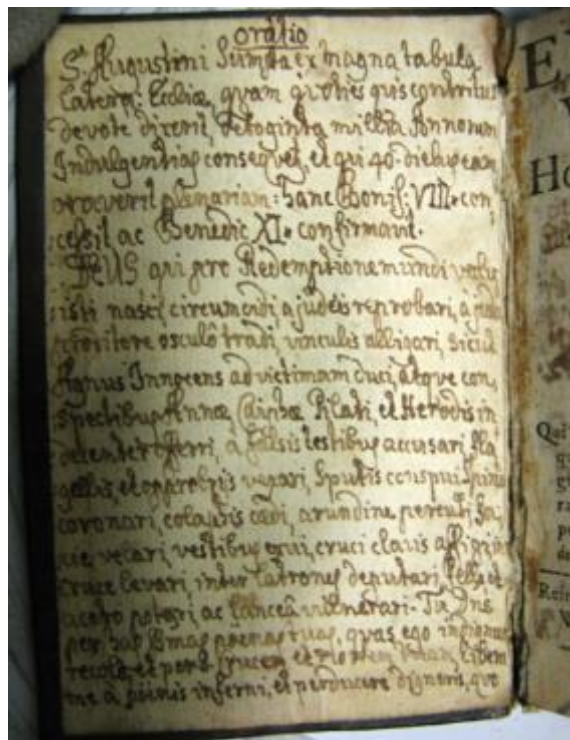 oratio
S. Augustini Sumpta ex magna tabula
Laterā: Eccliæ, quam quoties quis contritus
devote dixerit, octoginta millia Annorum
Indulgentias consequet, et qui 40. diebus eam
plenariam: hanc Bonif: VIII. con,
cessit ac Benedic XI. confirmavit.
DEUS qui pro Redemptione mundi volu
isti nasci, circumcidi, a judæis reprobari, a
osculo tradi, vinculis alligari, sicut
Agnus Innocens ad victimam duci, atque con,
spectibus Annæ Caiphæ Pilati, et Herodis in
decenter offerri, a falsis testibus accusari, fla
gellis, et opprobriis vexari, sputis conspui, spinis
coronari, colaphis cædi, arundine percuti, fa,
cie velari, vestibus exui, cruci clavis affigi, in
cruce levari, inter latrones deputari, felle et
aceto potari ac lanceâ vulnerari. Tu Dns
per has ssmas poenas tuas, quas ego indignus
recolo, et per Crucem et mortem tuam libera
me a poenis inferni, et perducere digneris, quo
E
V
Ho
Qui